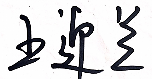 王迎兰